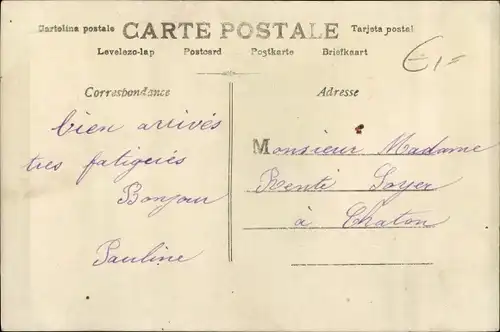 Cartolina postale CARTE POSTALE Tarjeta postal
Levelezo-lap Postcard Postkarte Briefkaart
€1=
Correspondance
bien arrivés
tres fatigués
Bonjour
Pauline
Adresse
Monsieur Madame
à Chaton